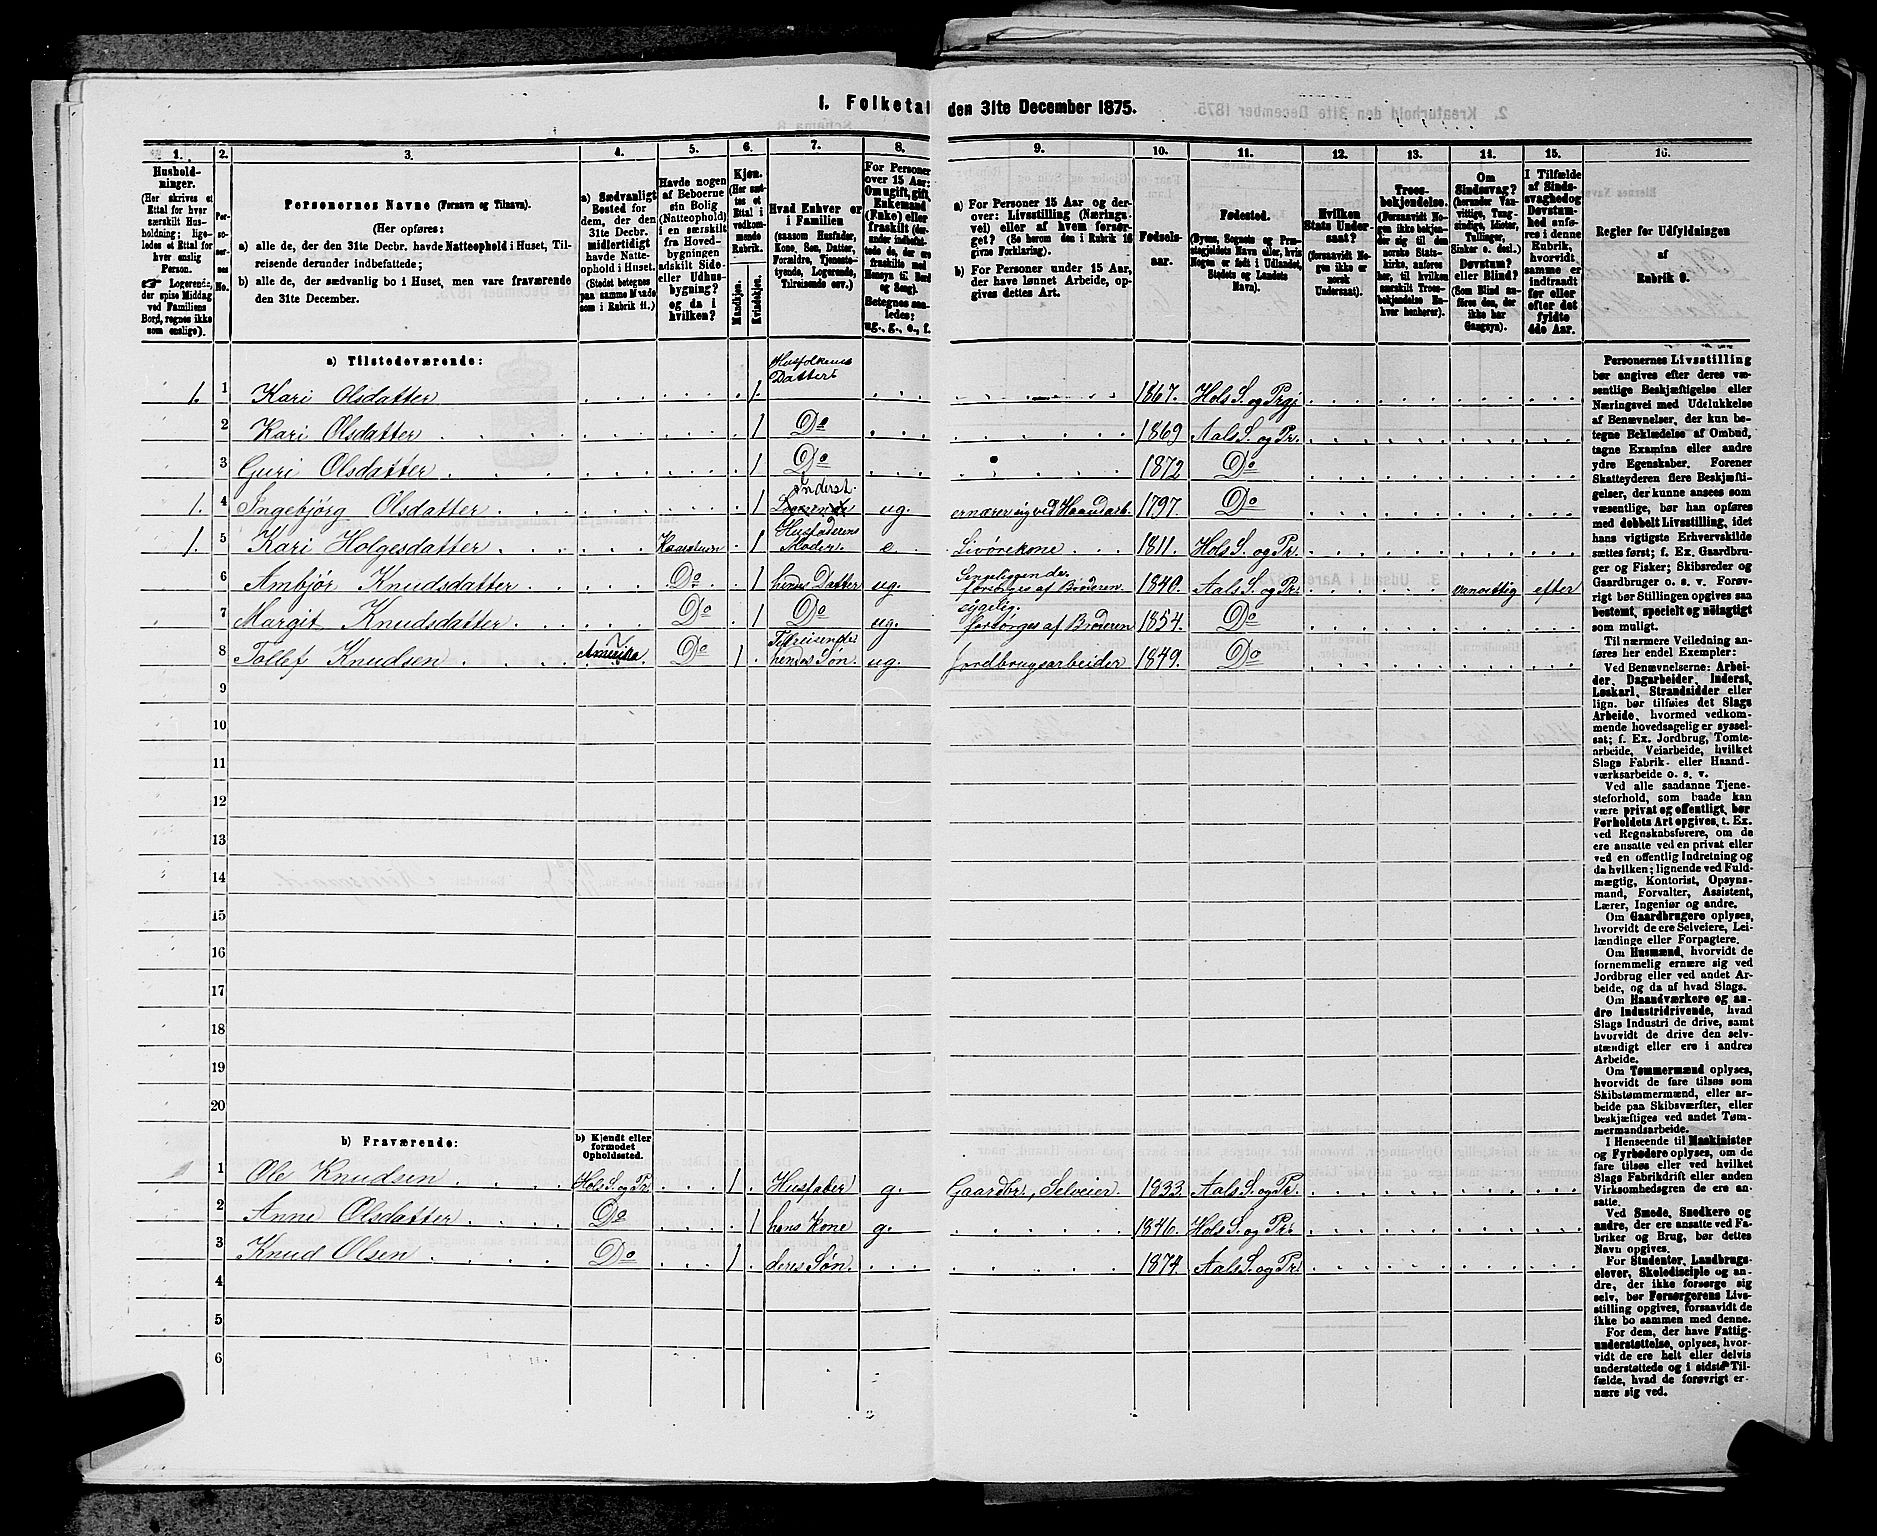 I. Folketal den 31te December 1875.
1. 2. 3. 4. 5. 6. 7. 8. 9. 10. 11. 12. 13. 14. 15. 16.
Husholdninger.
(Her skrives et Ettal for hver særskilt Husholdning; ligeledes et Ettal for hver enslig Person.
Logerende, der spise Middag ved Familiens Bord, regnes ikke som enslige).
Personernes No.
Personernes Navne (Fornavn og Tilnavn).
(Her opføres:
a) alle de, der den 31te Decbr. havde Natteophold i Huset, Tilreisende derunder indbefattede;
b) alle de, der sædvanlig bo i Huset, men vare fraværende den 31te December.
a) Sædvanligt Bosted for dem, der den 31te Decbr. midlertidigt havde Natteophold i Huset.
(Stedet betegnes paa samme Maade som i Rubrik 11.)
Havde nogen af Beboerne sin Bolig (Natteophold) i en særskilt fra Hovedbygningen adskilt Side- eller Udhusbygning? og da i hvilken?
Kjøn.
(Her sættes et Ettal i vedkommende Rubrik.
Mandkjøn.
Kvindekjøn.
Hvad Enhver er i Familien
(saasom Husfader, Kone, Søn, Datter, Forældre, Tjenestetyende, Logerende, Tilreisende osv.)
For Personer over 15 Aar: Om ugift, gift, Enkemand (Enke) eller fraskilt
Betegnes saaledes: ug., g., e., f.
a) For Personer 15 Aar og derover: Livsstilling (Næringsvei) eller af hvem forsørget? (Se herom den i Rubrik 16 givne Forklaring).
b) For Personer under 15 Aar, der have lønnet Arbeide, opgives dettes Art.
Fødselsaar.
Fødested.
(Byens, Sognets og Præstegjeldets Navn eller, hvis Nogen er født i Udlandet, Stedets og Landets Navn).
Hvilken Stats Undersaat?
(forsaavidt Nogen ikke er norsk Undersaat).
Troesbekjendelse.
(Forsaavidt Nogen ikke bekjender sig til den norske Statskirke, anføres her, til hvilken særskilt Troesbekjendelse Enhver henhører).
Om Sindssvag? (herunder Vanvittige, Tungsindige, Idioter, Tullinger, Sinker o. desl.) Døvstum? eller Blind? (Som Blind anføres den, der ikke har Gangsyn).
I Tilfælde af Sindssvaghed og Døvstumhed anføres i denne Rubrik, hvorvidt samme er indtraadt før eller efter det fyldte 4de Aar.
Regler for Udfyldningen af Rubrik 9.
a) Tilstedeværende:
1. 1 Kari Olsdatter 1. Husfolkenes Datter 1867. Hols S. og Prgj
2 Kari Olsdatter 1 Do 1869 Aals S. og Pr.
3 Guri Olsdatter 1 Do 1872 Do
1. 4 Ingebjørg Olsdatter 1 Inderst. ug. ernærer sig ved Haandarb. 1797. Do
1. 5 Kari Holgesdatter 1 Husfaderens Moder. e Livørekone 1811. Hols S. og Pr.
6 Ambjør Knudsdatter Do 1 hends Datter ug. Sengeliggende forsørges af Broderen 1840. Aals S. og Pr. vanvittig efter
7 Margit Knudsdatter Do 1 Do ug. sygelig. forsørges af Broderen 1854. Do
8 Tollef Knudsen Amerika Do 1 Tilreisende hendes Søn ug. Jordbrugsarbeider 1849. Do
9
10
11
12
13
14
15
16
17
18
19
20
b) Fraværende: b) Kjendt eller formodet Opholdssted.
1 Ole Knudsen Hols S. og Pr. 1 Husfader g. Gaardbr., Selveier 1833. Aals S. og Pr.
2 Anne Olsdatter Do 1 hans Kone g. 1846. Hols S. og Pr.
3 Knud Olsen Do 1 deres Søn. 1874. Aals S. og Pr.
4
5
6
Personernes Livsstilling
bør angives efter deres væ-
sentlige Beskjæftigelse eller
Næringsvei med Udelukkelse
af Benævnelser, der kun be-
tegne Beklædelse af Ombud,
tagne Examina eller andre
ydre Egenskaber. Forener
Skatteyderen flere Beskjæfti-
gelser, der kunne ansees som
væsentlige, bør han opføres
med dobbelt Livsstilling, idet
hans vigtigste Erhvervskilde
sættes først; f. Ex. Gaardbru-
ger og Fisker; Skibsreder og
Gaardbruger o. s. v. Forøv-
rigt bør Stillingen opgives saa
bestemt, specielt og nøiagtigt
som muligt.
Til nærmere Veiledning an-
føres her endel Exempler:
Ved Benævnelserne: Arbei-
der, Dagarbeider, Inderst,
Løskarl, Strandsidder eller
lign. bør tilføies det Slags
Arbeide, hvormed vedkom-
mende hovedsagelig er syssel-
sat; f. Ex. Jordbrug, Tomte-
arbeide, Veiarbeide, hvilket
Slags Fabrik- eller Haand-
værksarbeide o. s. v.
Ved alle saadanne Tjene-
steforhold, som baade kan
være privat og offentligt, bør
Forholdets Art opgives, t. Ex.
ved Regnskabsførere, om de
ere ansatte ved en privat eller
ved en offentlig Indretning og
da hvilken; lignende ved Fuld-
mægtig, Kontorist, Opsyns-
mand, Forvalter, Assistent,
Lærer, Ingeniør og andre.
Om Gaardbrugere oplyses,
hvorvidt de ere Selveiere, Lei-
lændinge eller Forpagtere.
Om Husmænd, hvorvidt de
fornemmelig ernære sig ved
Jordbrug eller ved andet Ar-
beide, og da af hvad Slags.
Om Haandværkere og an-
dre Industridrivende, hvad
Slags Industri de drive, samt
hvorvidt de drive den selv-
stændigt eller ere i andres
Arbeide.
Om Tømmermænd oplyses,
hvorvidt de fare tilsøs som
Skibstømmermænd, eller ar-
beide paa Skibsværfter, eller
beskjæftiges ved andet Tøm-
mermandsarbeide.
I Henseende til Maskinister
og Fyrbødere oplyses, om de
fare tilsøs eller ved hvilket
Slags Fabrikdrift eller anden
Virksomhedsgren de ere an-
satte.
Ved Smede, Snedkere og
andre, der ere ansatte ved Fa-
briker og Brug, bør dettes
Navn opgives.
For Studenter, Landbrugs-
elever, Skoledisciple og an-
dre, der ikke forsørge sig
selv, bør Forsørgerens Livs-
stilling opgives, forsaavidt de
ikke bo sammen med denne.
For dem, der have Fattig-
understøttelse, oplyses, hvor-
vidt de ere helt eller delvis
understøttede og i sidste Til-
fælde, hvad de forøvrigt er-
nære sig ved.